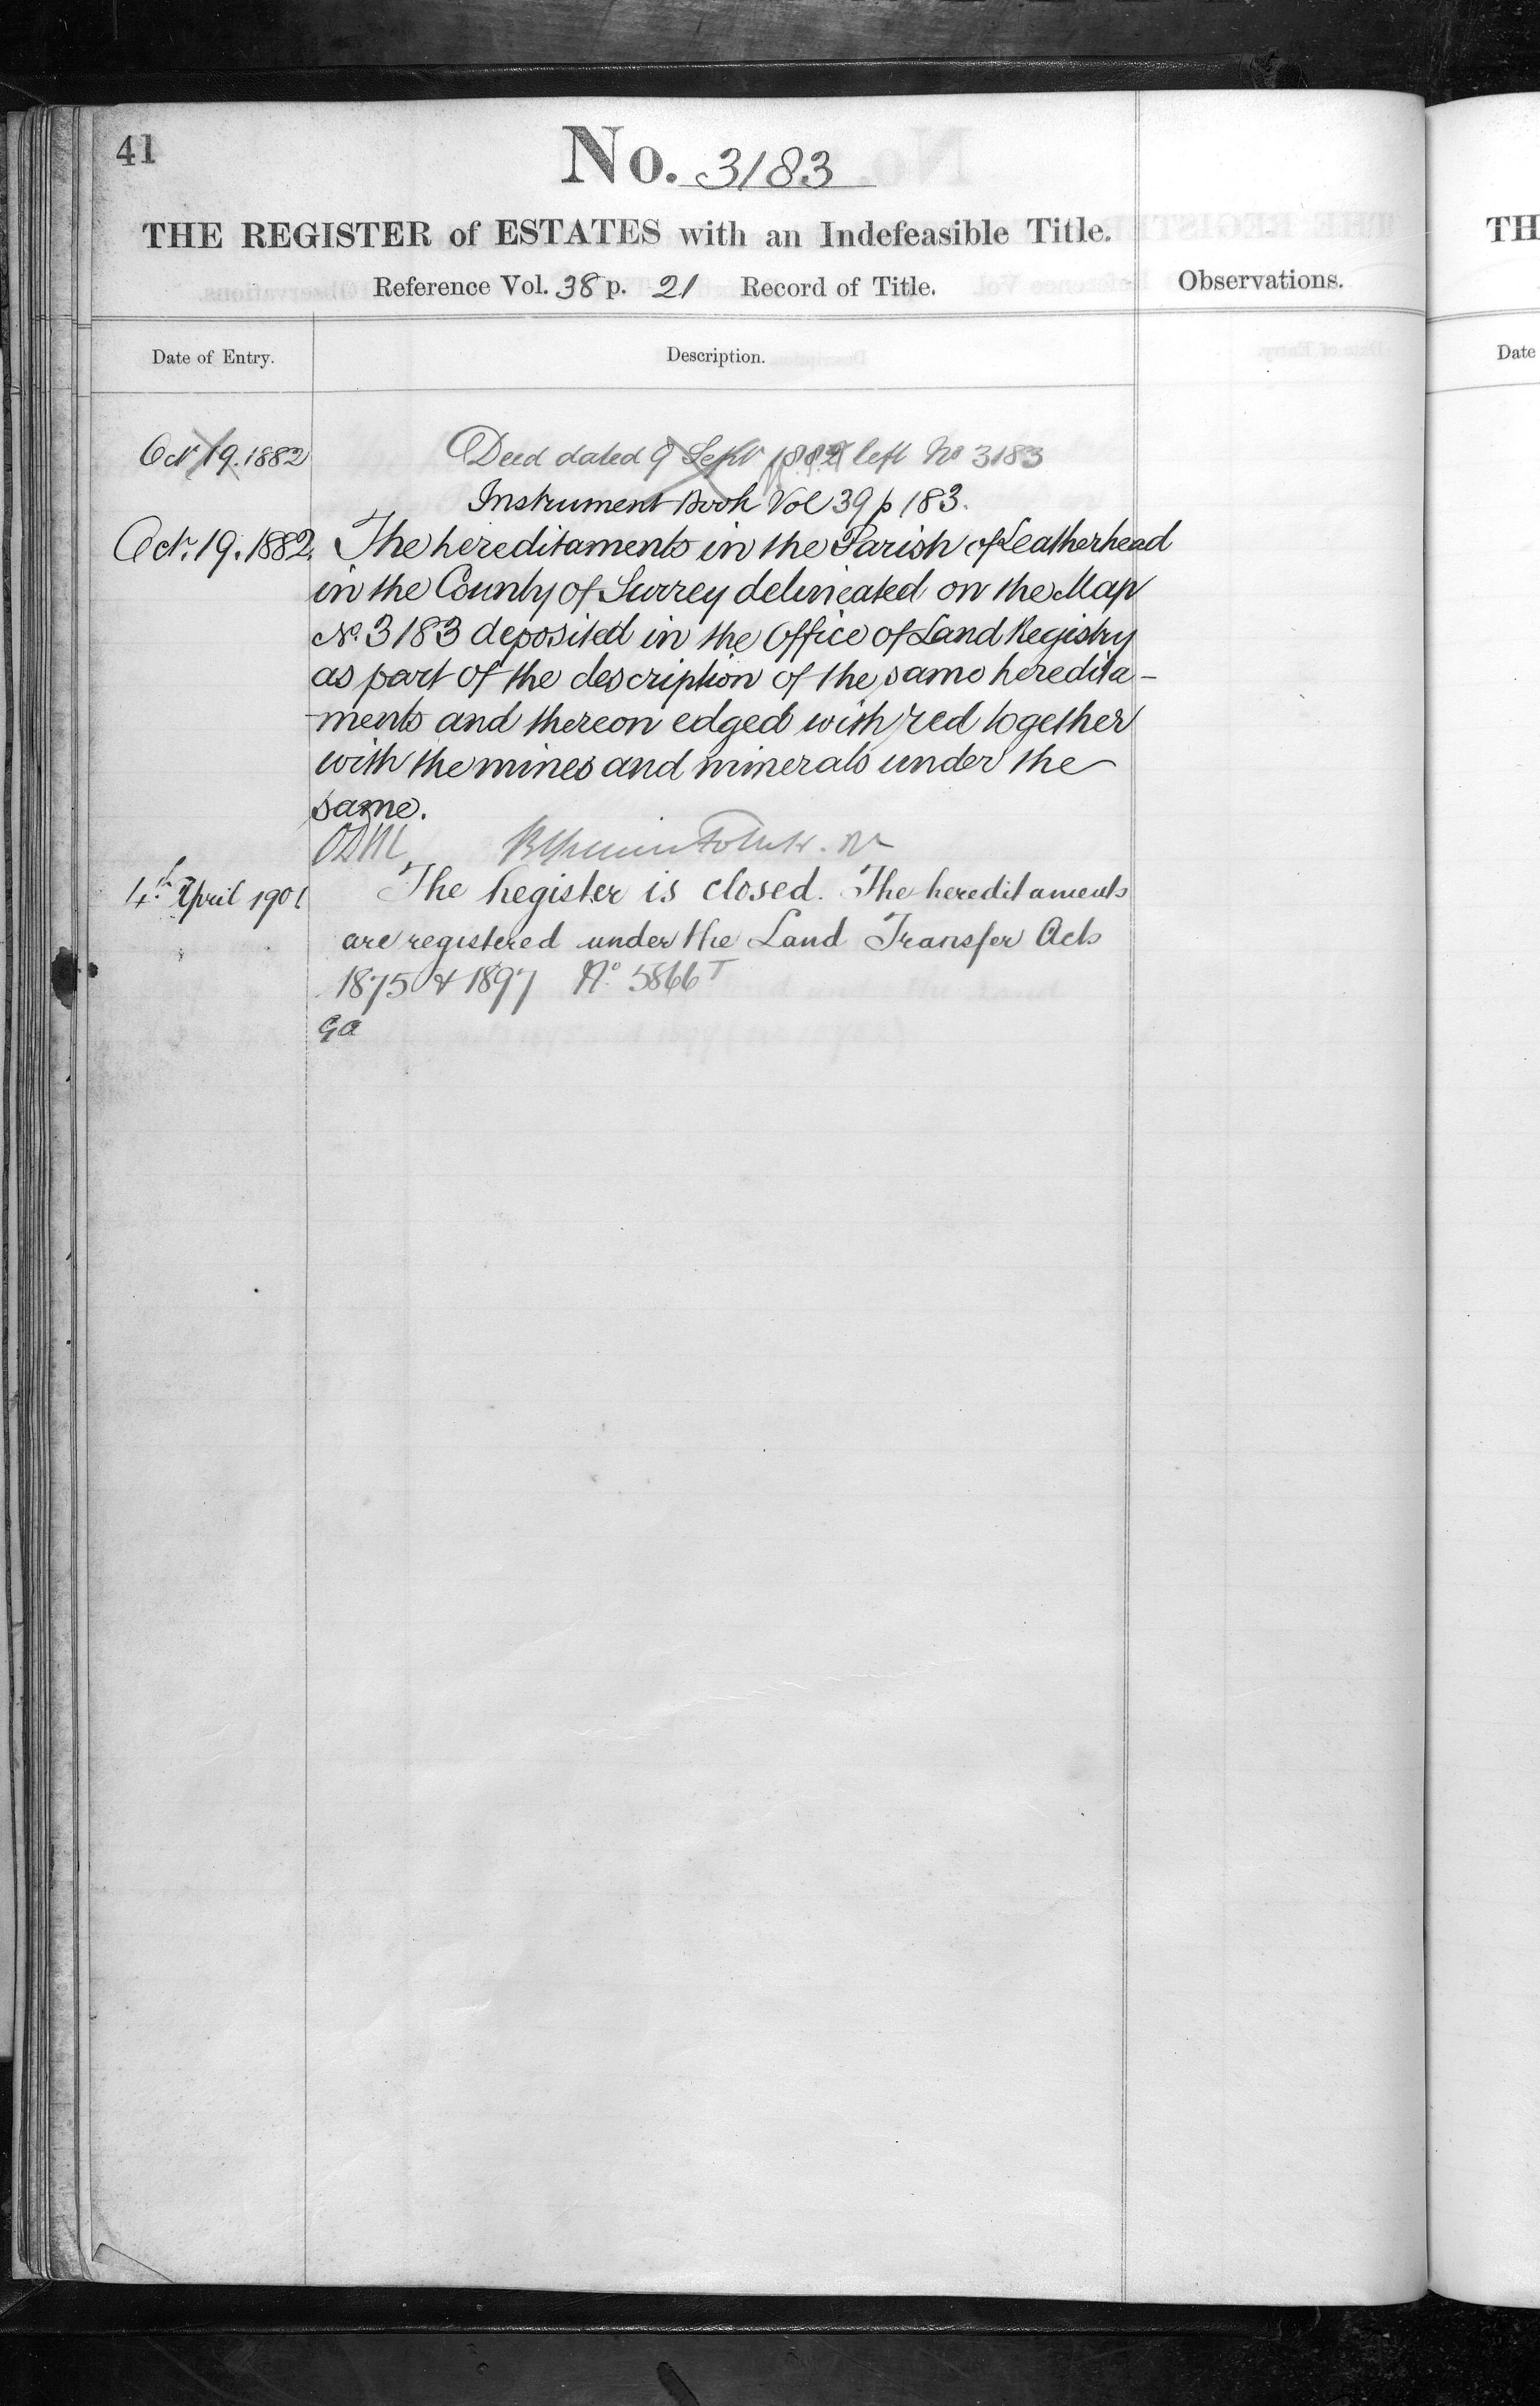 41
No. 3183
THE REGISTER of ESTATES with an Indefeasible Title.
Reference Vol. 38 p. 21 Record of Title.
Observations.
Date of Entry.
Description.
Oct 19. 1882
Deed dated 9 Sept 1882 left No 3183
Instrument Book Vol 39 p 183.
Oct. 19. 1882. The hereditaments in the Parish of Leatherhead
in the County of Surrey delineated on the Map
No. 3183 deposited in the Office of Land Registry
as part of the description of the same heredita-
-ments and thereon edged with red together
with the mines and minerals under the
same.
4th April 1901 The Register is closed. The hereditaments
are registered under the Land Transfer Acts
1875 & 1897 No. 5866 T
GA
TH
Date